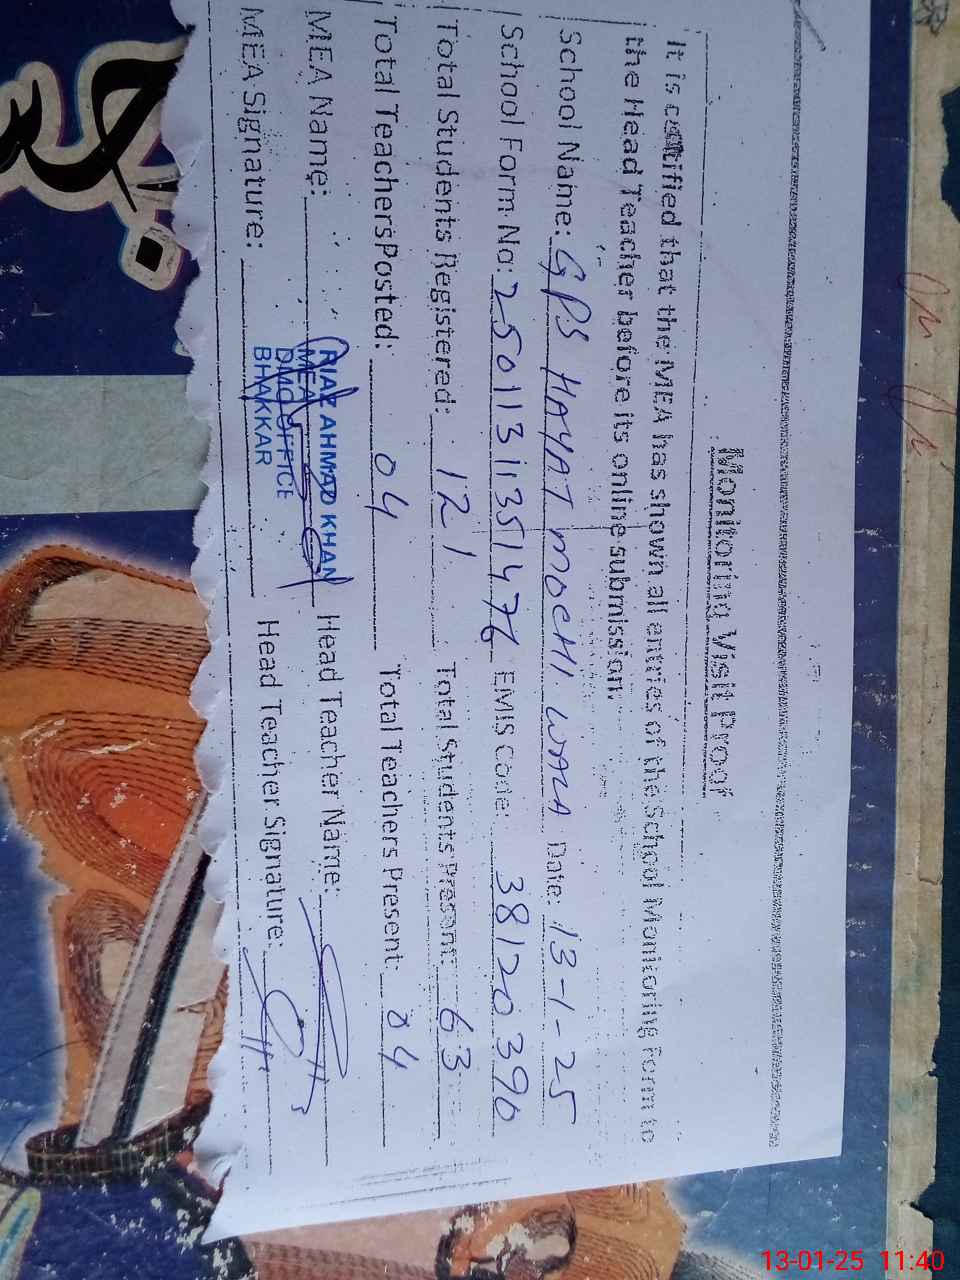 Monitoring Visit Proof
It is certified that the MEA has shown all entries of the School Monitoring Form to
the Head Teacher before its online submission.
School Name: GPS HAYAT MOCHI WALA Date: 13-1-25
School Form No: 25011311351476 EMIS Code: 38120390
Total Students Registered: 121 Total Students Present: 63
Total Teachers Posted: 04 Total Teachers Present: 04
MEA Name: RIAZ AHMAD KHAN Head Teacher Name:
MEA
DMO OFFICE
BHAKKAR
MEA Signature: Head Teacher Signature:
13-01-25 11:40